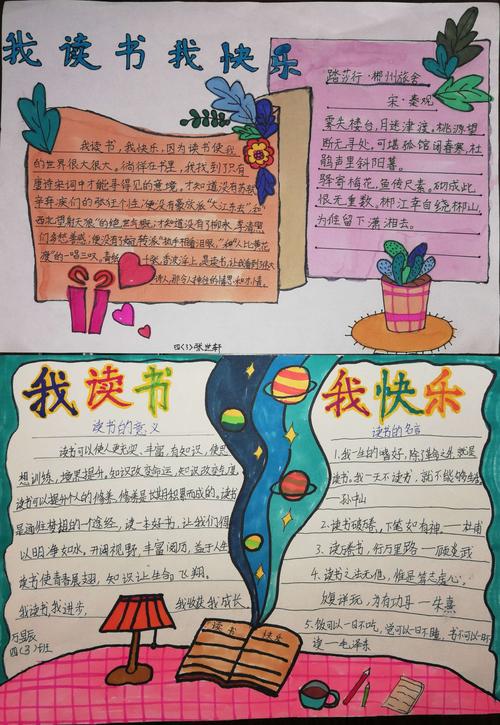 我读书我快乐
我读书，我快乐，因为读书使我
的世界很大很大。徜徉在书里，我找到了只有
唐诗宋词中才能寻得见的意境，才知道没有苏轼
辛弃疾们的
西北望射天狼"的绝世气概；才知道没有了柳永、李清照
们
渡"的一唱三叹，
踏莎行·郴州旅舍
宋·秦观
雾失楼台，月迷津渡，桃源望
断无寻处。可堪孤馆闭春寒，杜
鹃声里斜阳暮。
驿寄梅花，鱼传尺素。砌成此
恨无重数。郴江幸自绕郴山，
为谁留下潇湘去。
四(3)张世轩
我读书
读书的意义
读书可以使人更充实，丰富，有知识，使思
想训练，境界提升。知识改变命运，知识改变生活。
读书可以提升个人的修养，修养是长期积累而成的。读书
是通往梦想的一个途径，读一本好书，让我们得
以明净如水，开阔视野，丰富阅历，益于人生
读书使青春展翅，知识让生命飞翔。
我读书，我进步，我收获，我成长。
四(3)班
我快乐
读书的名言
1.我一生的嗜好，除了革命之外，就是
读书。我一天不读书，就不能够生活
—孙中山
2.读书破万卷，下笔如有神。—杜甫
3.读万卷书，行万里路—顾炎武
4.读书之法无他，惟是笃志虚心，
反复详玩，为有功耳—朱熹
5.饭可以一日不吃，觉可以一日不睡，书不可以一日不
读—毛泽东
读书
快乐